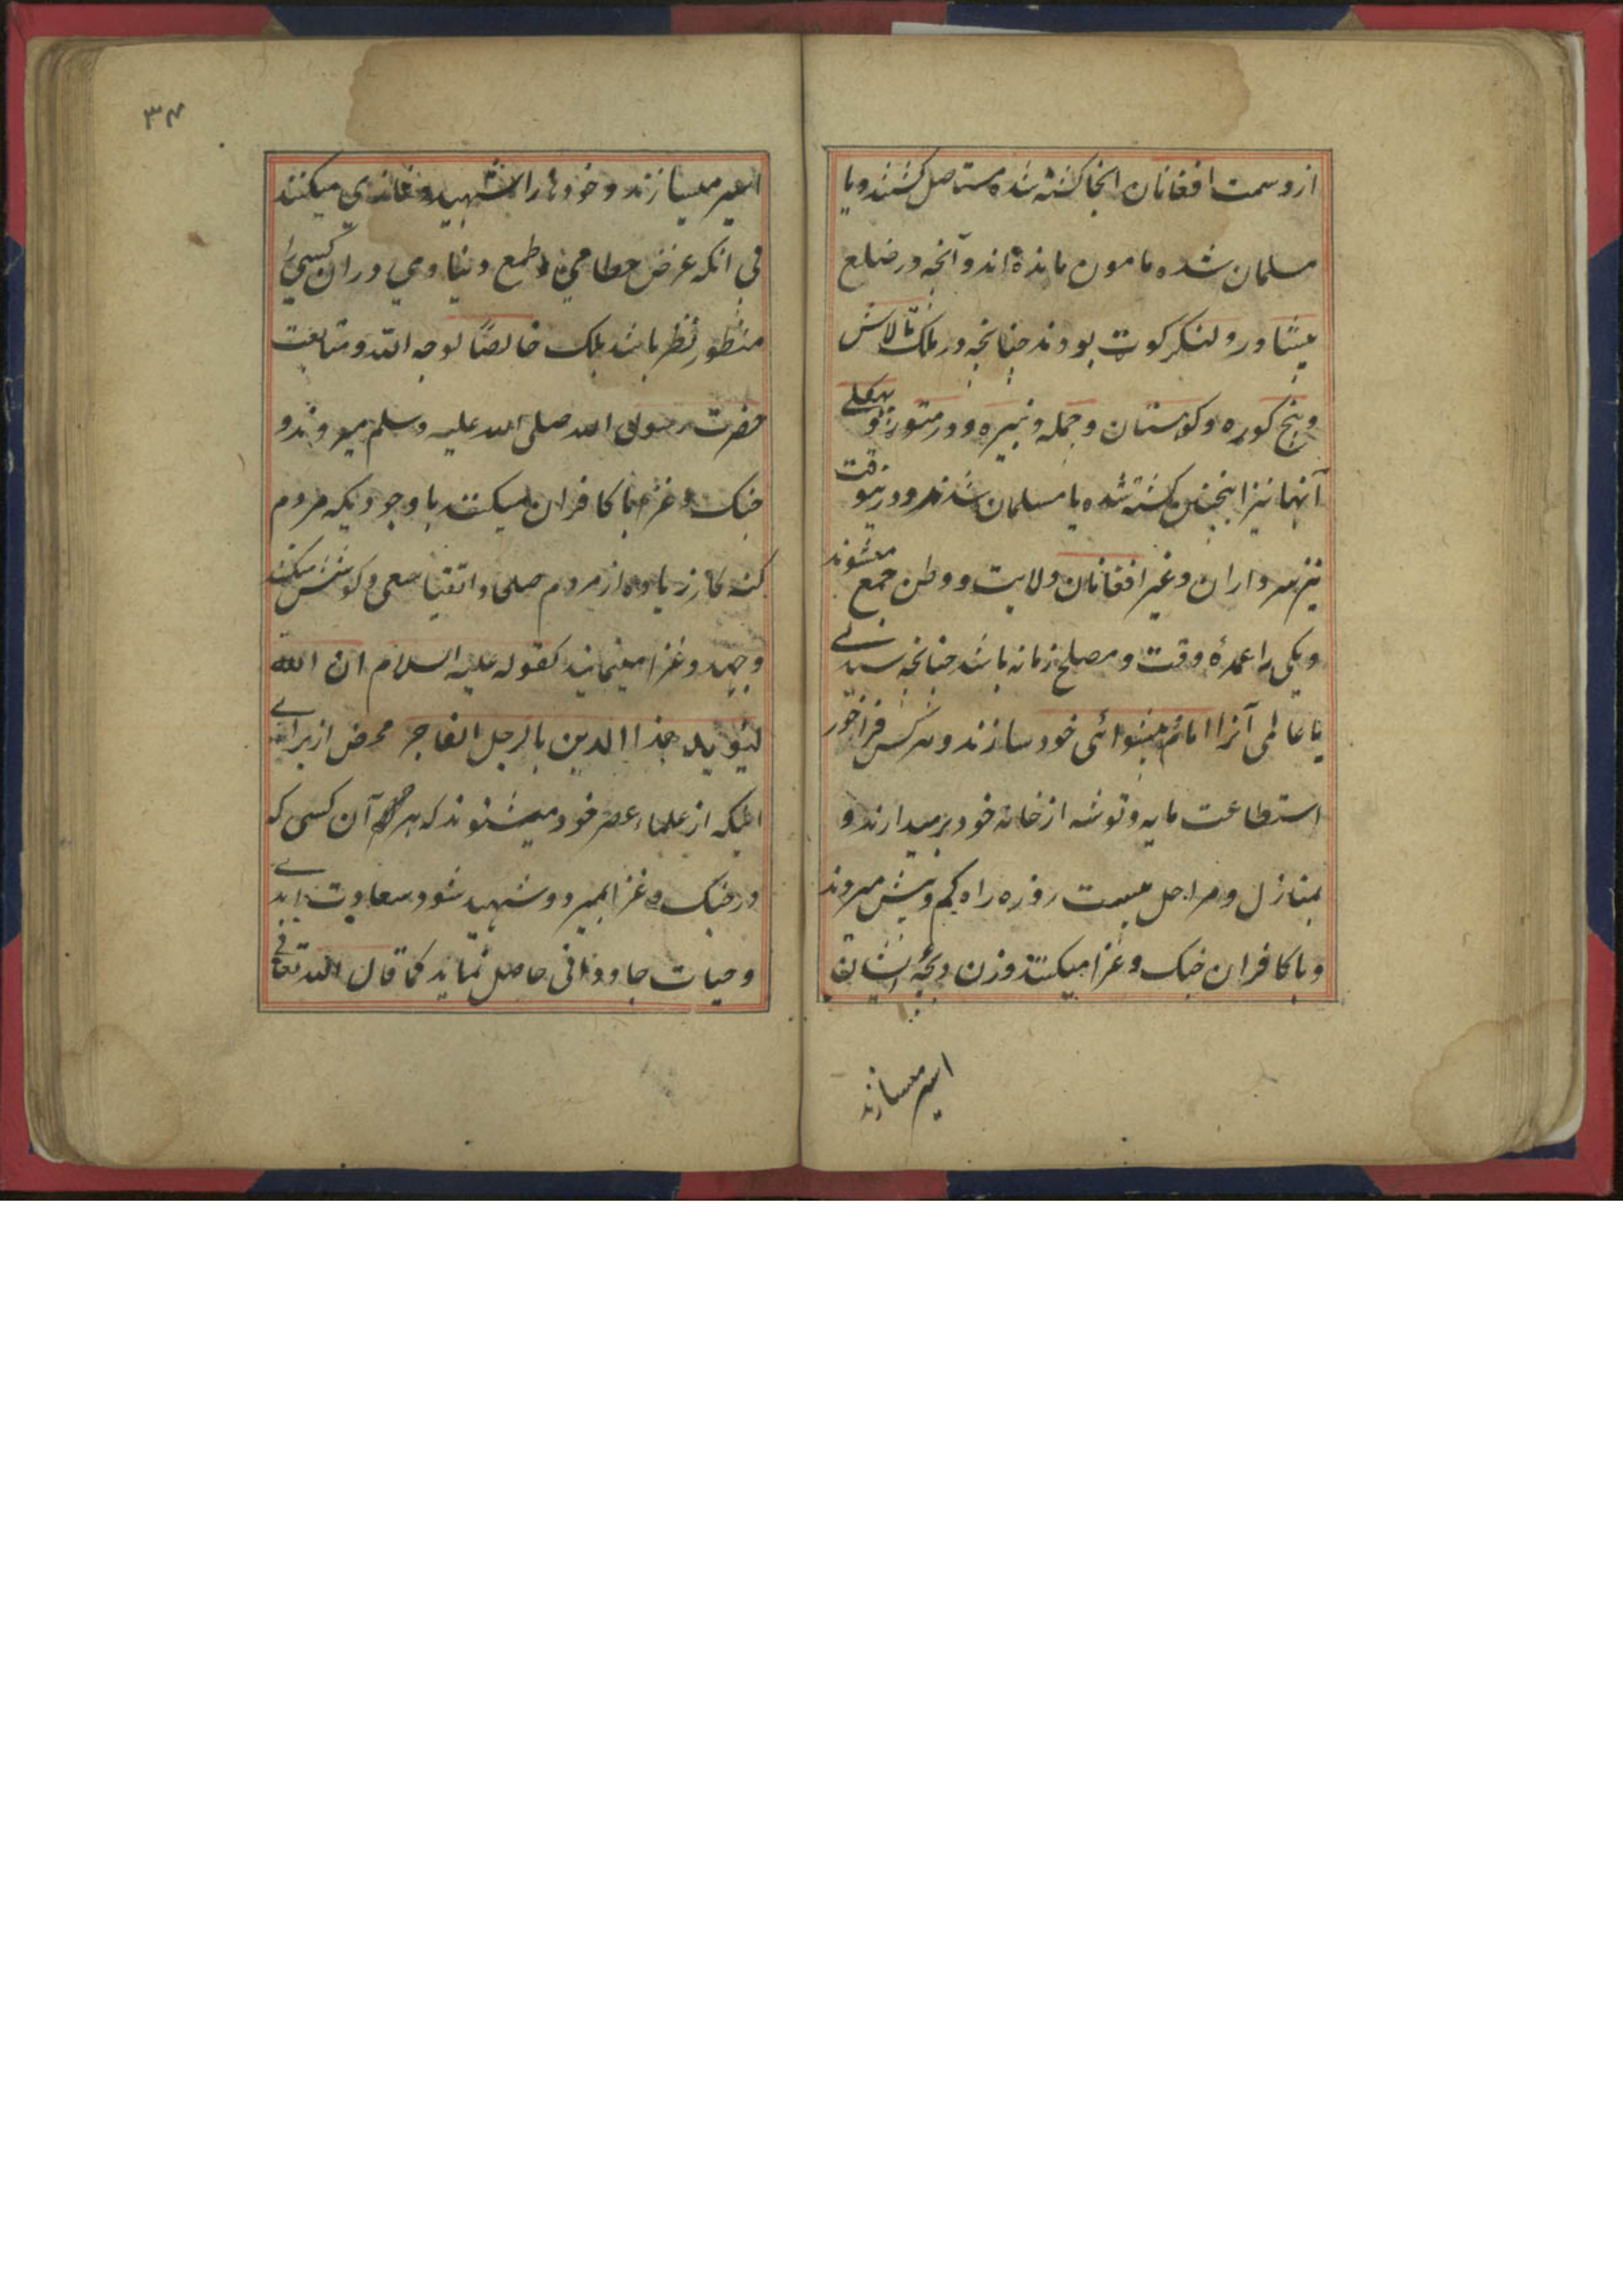 از دست افغانان انجا کشته شده مستاصل کشتند و یا
مسلمان شده مامون مانده اند و آنچه در ضلع
پشاور و لنکرکوت بودند چنانچه در ملک تالاش
و پنج کوره و کوهستان و جمله و نمیره و در متوره و
آنها نیز اینچنین کشته شده یا مسلمان شدند و درینوقت
نیز سرداران وغیر افغانان ولایت و وطن جمع میشوند
و یکی را عمدهٔ وقت و مصلح زمانه باشد چنانچه سیدے
یا عالمی آنرا امام پیشوائی خود سازند و هر کس فراخور
استطاعت مایه و توشه از خانه خود برمیدارند و
بمنازل و مراحل بیست روزه راه کم و بیش میروند
و با کافران جنک و غزا میکنند و زن و بچهٔ ایشان
اسیر میسازند
۳۴
اسیر میسازند و خودها را شهید و غازی میکنند
فی انکه عرض حطامی و طمع دنیاوی دران کسی را
منظور نظر باشد بلک خالصًا لوجه الله و متابعت
حضرت رسول الله صلی الله علیه وسلم میروند و
جنک و غزا با کافران میکنند باوجودیکه مردم
کنه کار زیاده از مردم صلحا و اتقیا سعی و کوشش میکنند
و جهد و غزا مینمایند کقوله علیه السلام ان الله
لیؤید هذا الدین بالرجل الفاجر محض از براے
انیکه از علماء عصر خود میشنوند که هر آن کسی که
در جنک و غزا بمیرد و شهید شود سعادت ابدے
و حیات جاودانی حاصل نماید کما قال الله تعالی